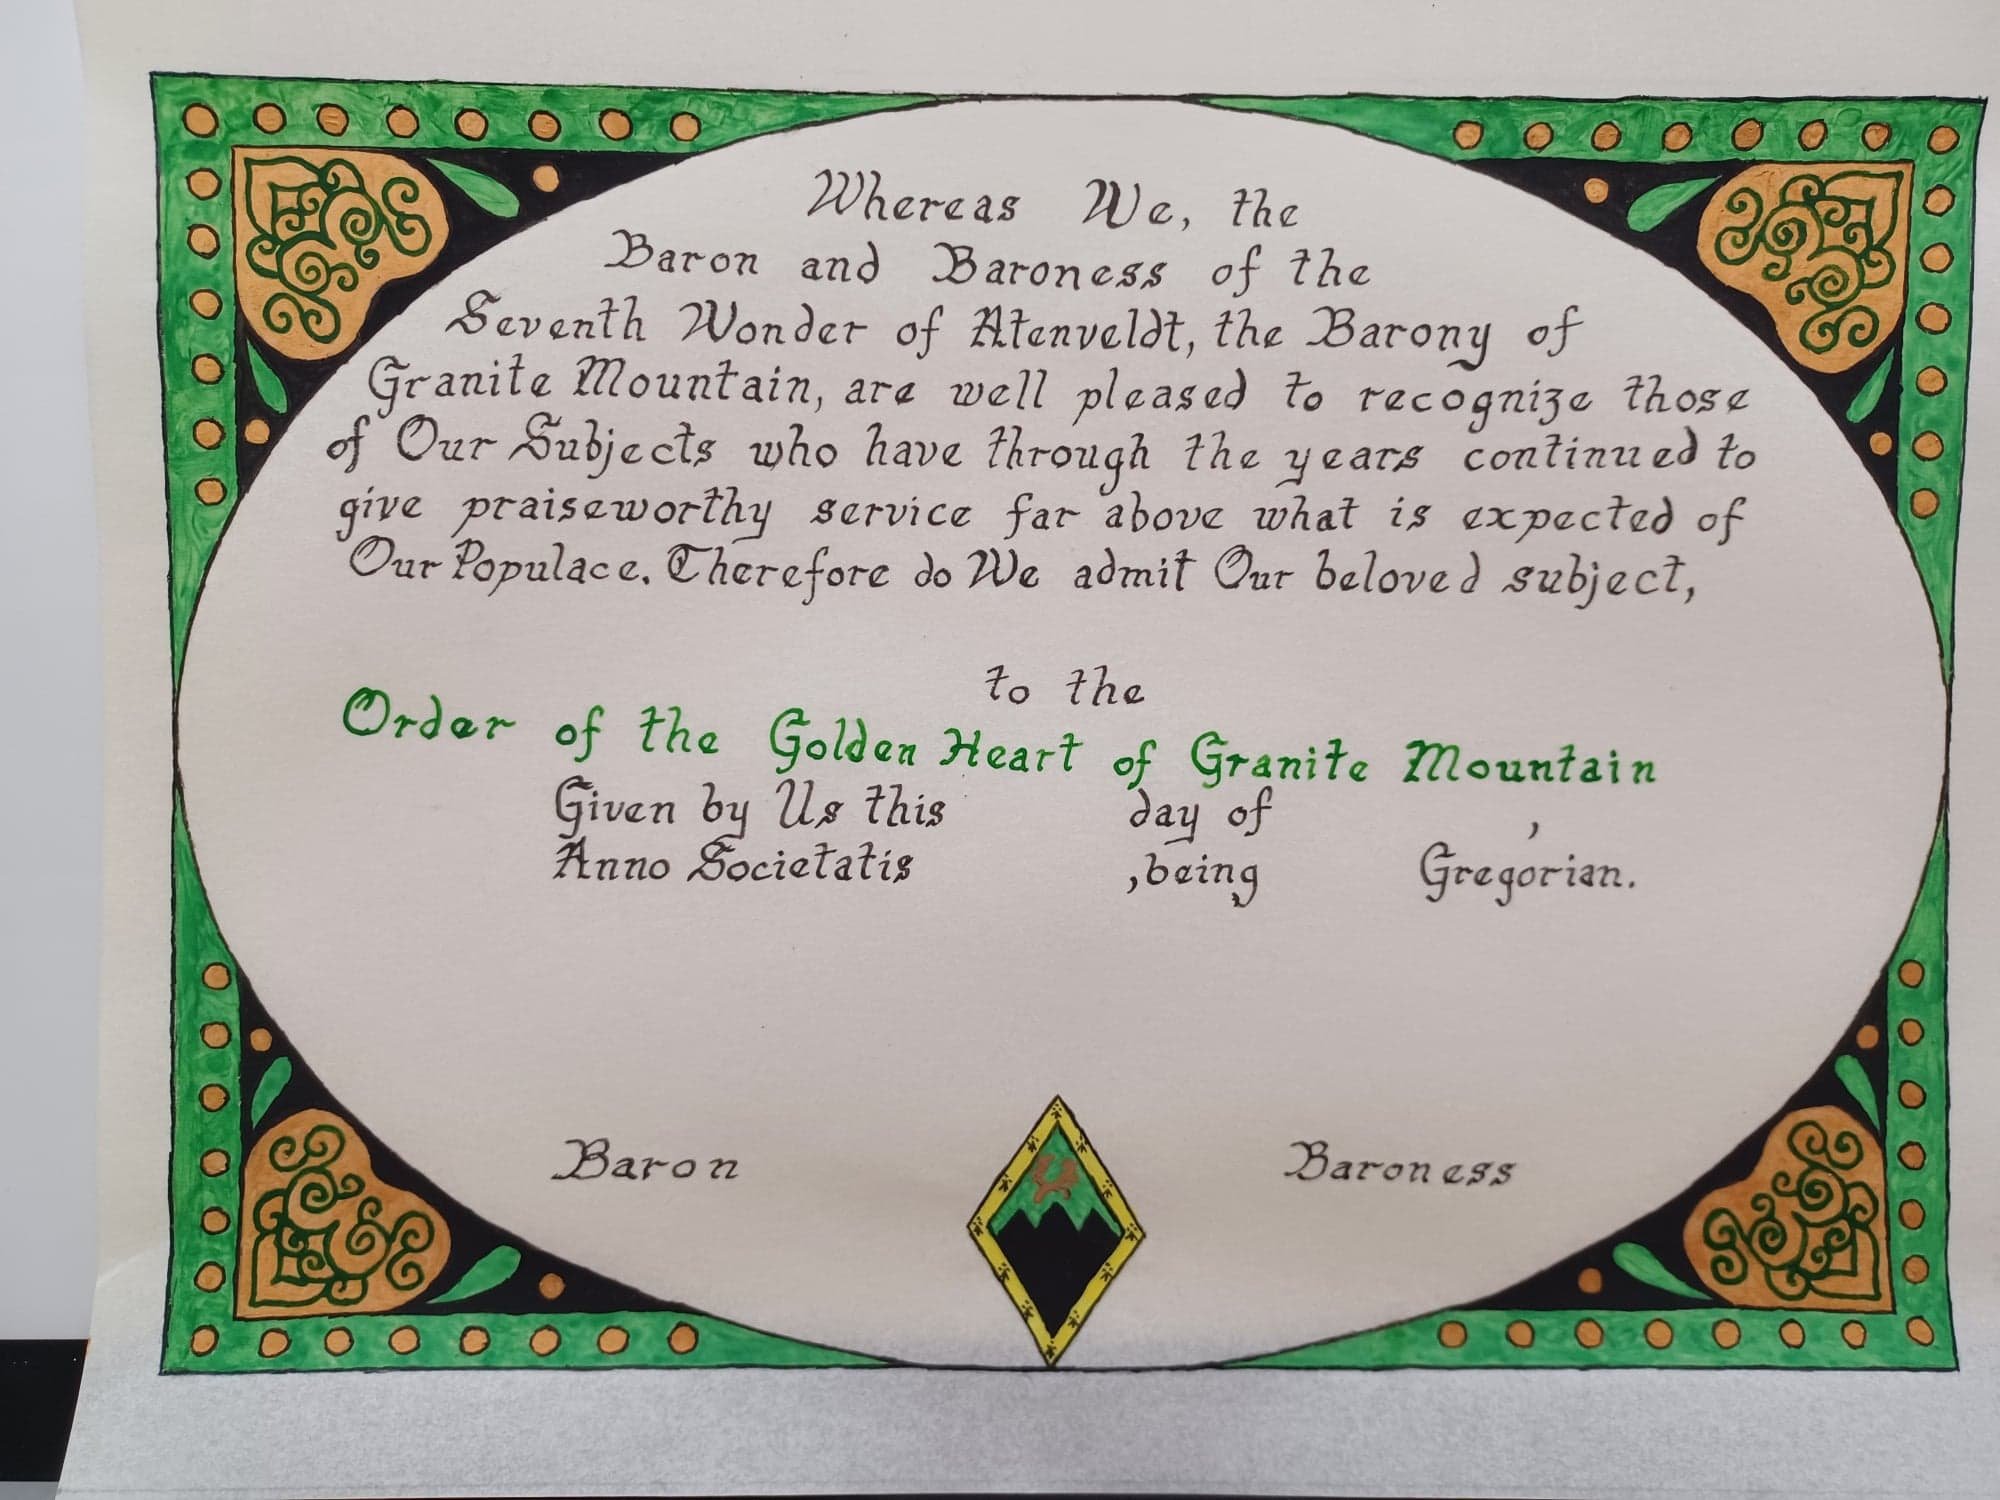 Whereas We, the
Baron and Baroness of the
Seventh Wonder of Atenveldt, the Barony of
Granite Mountain, are well pleased to recognize those
of Our Subjects who have through the years continued to
give praiseworthy service far above what is expected of
Our Populace. Therefore do We admit Our beloved subject,
to the
Order of the Golden Heart of Granite Mountain
Given by Us this day of ,
Anno Societatis , being Gregorian.
Baron Baroness